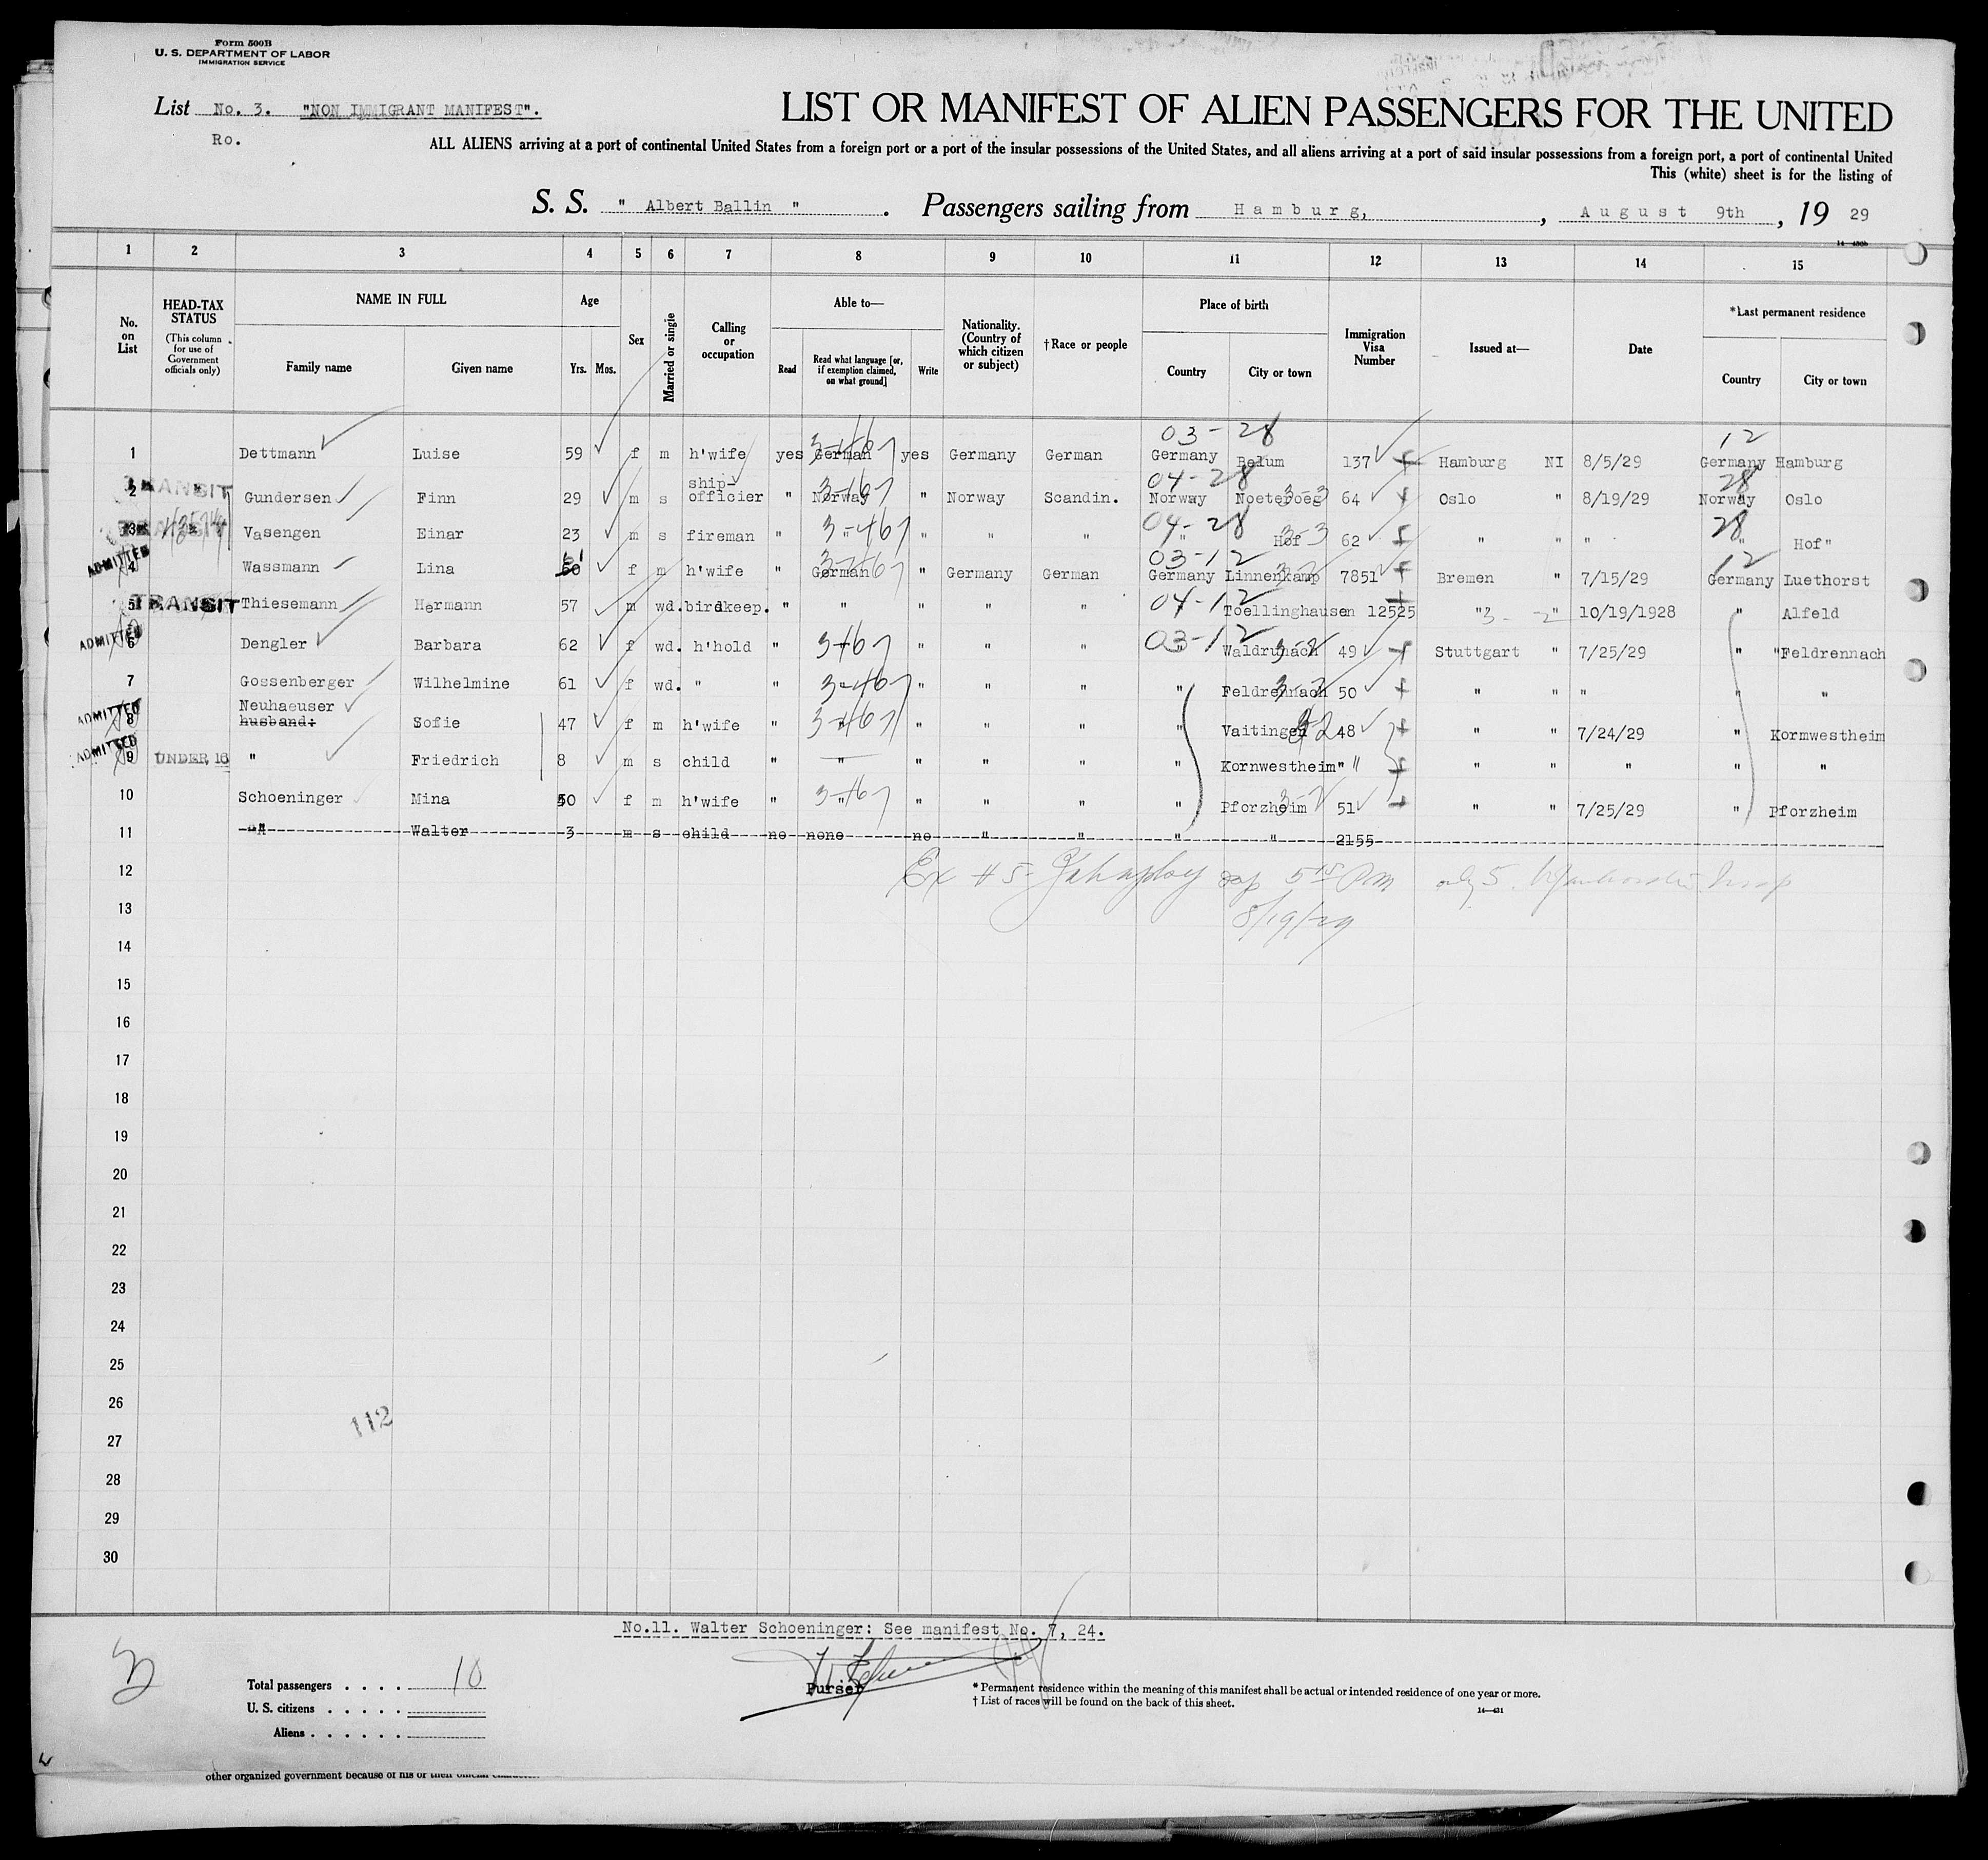 Form 500B
U. S. DEPARTMENT OF LABOR
IMMIGRATION SERVICE
List No. 3. "NON IMMIGRANT MANIFEST".
Ro.
LIST OR MANIFEST OF ALIEN PASSENGERS FOR THE UNITED
ALL ALIENS arriving at a port of continental United States from a foreign port or a port of the insular possessions of the United States, and all aliens arriving at a port of said insular possessions from a foreign port, a port of continental United
This (white) sheet is for the listing of
S. S. " Albert Ballin " . Passengers sailing from Hamburg, , August 9th , 19 29
1 2 3 4 5 6 7 8 9 10 11 12 13 14 15
No. on List
HEAD-TAX STATUS (This column for use of Government officials only)
NAME IN FULL
Family name Given name
Age
Yrs. Mos.
Sex
Married or single
Calling or occupation
Able to—
Read Read what language [or, if exemption claimed, on what ground] Write
Nationality. (Country of which citizen or subject)
†Race or people
Place of birth
Country City or town
Immigration Visa Number
Issued at—
Date
*Last permanent residence
Country City or town
03-28 12
1 Dettmann Luise 59 f m h'wife yes German yes Germany German Germany Belum 137 Hamburg NI 8/5/29 Germany Hamburg
04-28 28
2 TRANSIT Gundersen Finn 29 m s ship-officier " Norway " Norway Scandin. Norway Noeteroeg 64 Oslo " 8/19/29 Norway Oslo
04-28 28
3 Vasengen Einar 23 m s fireman " 3-467 " " " " Hof 62 " " " " Hof"
03-12 12
ADMITTED 4 Wassmann Lina 60 f m h'wife " German " Germany German Germany Linnenkamp 7851 Bremen " 7/15/29 Germany Luethorst
04-12
5 TRANSIT Thiesemann Hermann 57 m wd. birdkeep. " " " " " Toellinghausen 12525 " " 10/19/1928 " Alfeld
03-12
ADMITTED 6 Dengler Barbara 62 f wd. h'hold " " " " Waldrunach 49 Stuttgart " 7/25/29 " "Feldrennach
7 Gossenberger Wilhelmine 61 f wd. " " " " " " " Feldrennach 50 " " " " "
ADMITTED 8 Neuhaeuser husband: Sofie 47 f m h'wife " " " " " " Vaitingen 48 " " 7/24/29 " Kormwestheim
ADMITTED 9 UNDER 16 " Friedrich 8 m s child " " " " " " Kornwestheim " " " " " " "
10 Schoeninger Mina 50 f m h'wife " " " " " " Pforzheim 51 " " 7/25/29 " Pforzheim
11 " Walter 3 m s child no none no " " " " 2155
12 Ex # 5 5 15 PM
13 8/19/29
14
15
16
17
18
19
20
21
22
23
24
25
26
112
27
28
29
30
No.11. Walter Schoeninger: See manifest No. 7, 24.
Purser
Total passengers . . . . 10
U. S. citizens . . . . .
Aliens . . . . . .
* Permanent residence within the meaning of this manifest shall be actual or intended residence of one year or more.
† List of races will be found on the back of this sheet.
14—431
other organized government because of his or their official character.